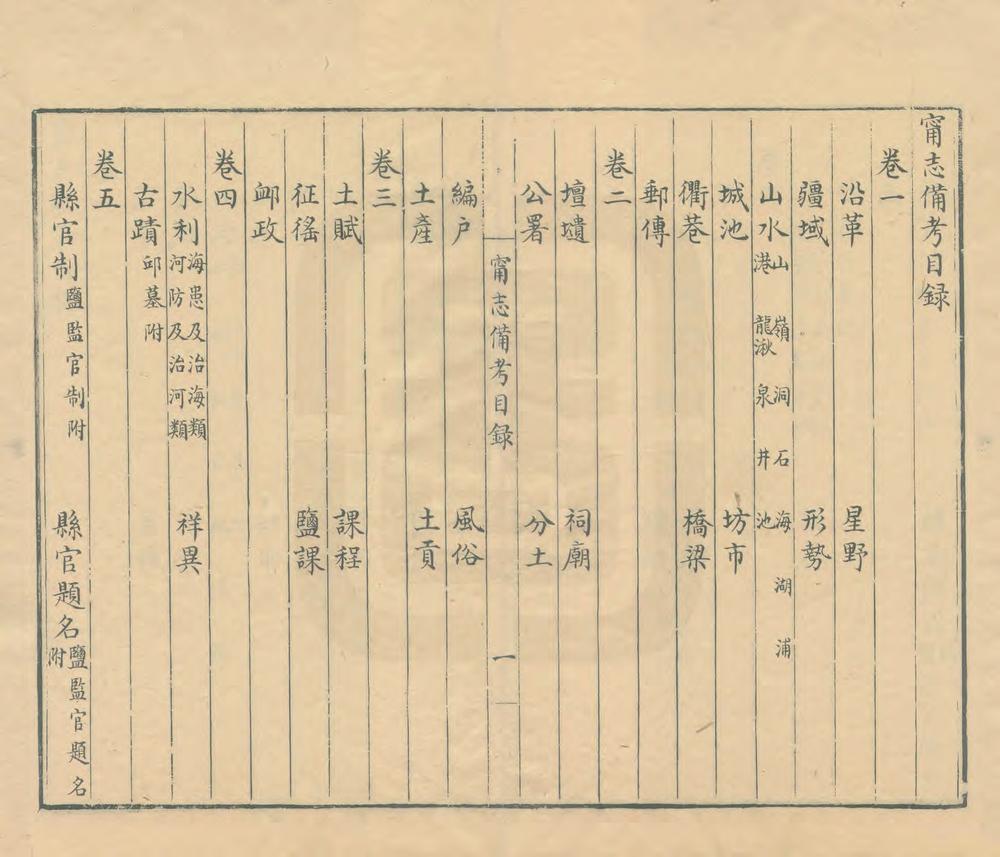 甯志備考目録
卷一
沿革 星野
疆域 形勢
山水 山 嶺 洞 石 海 湖 浦 港 龍湫 泉 井 池
城池 坊市
衢巷 橋梁
郵傳
卷二
壇壝 祠廟
公署 分土
甯志備考目録 一
編户 風俗
土產 土貢
卷三
土賦 課程
征徭 鹽課
卹政
卷四
水利 海患及治海類 河防及治河類 祥異
古蹟 邱墓附
卷五
縣官制 鹽監官制附 縣官題名 鹽監官題名附